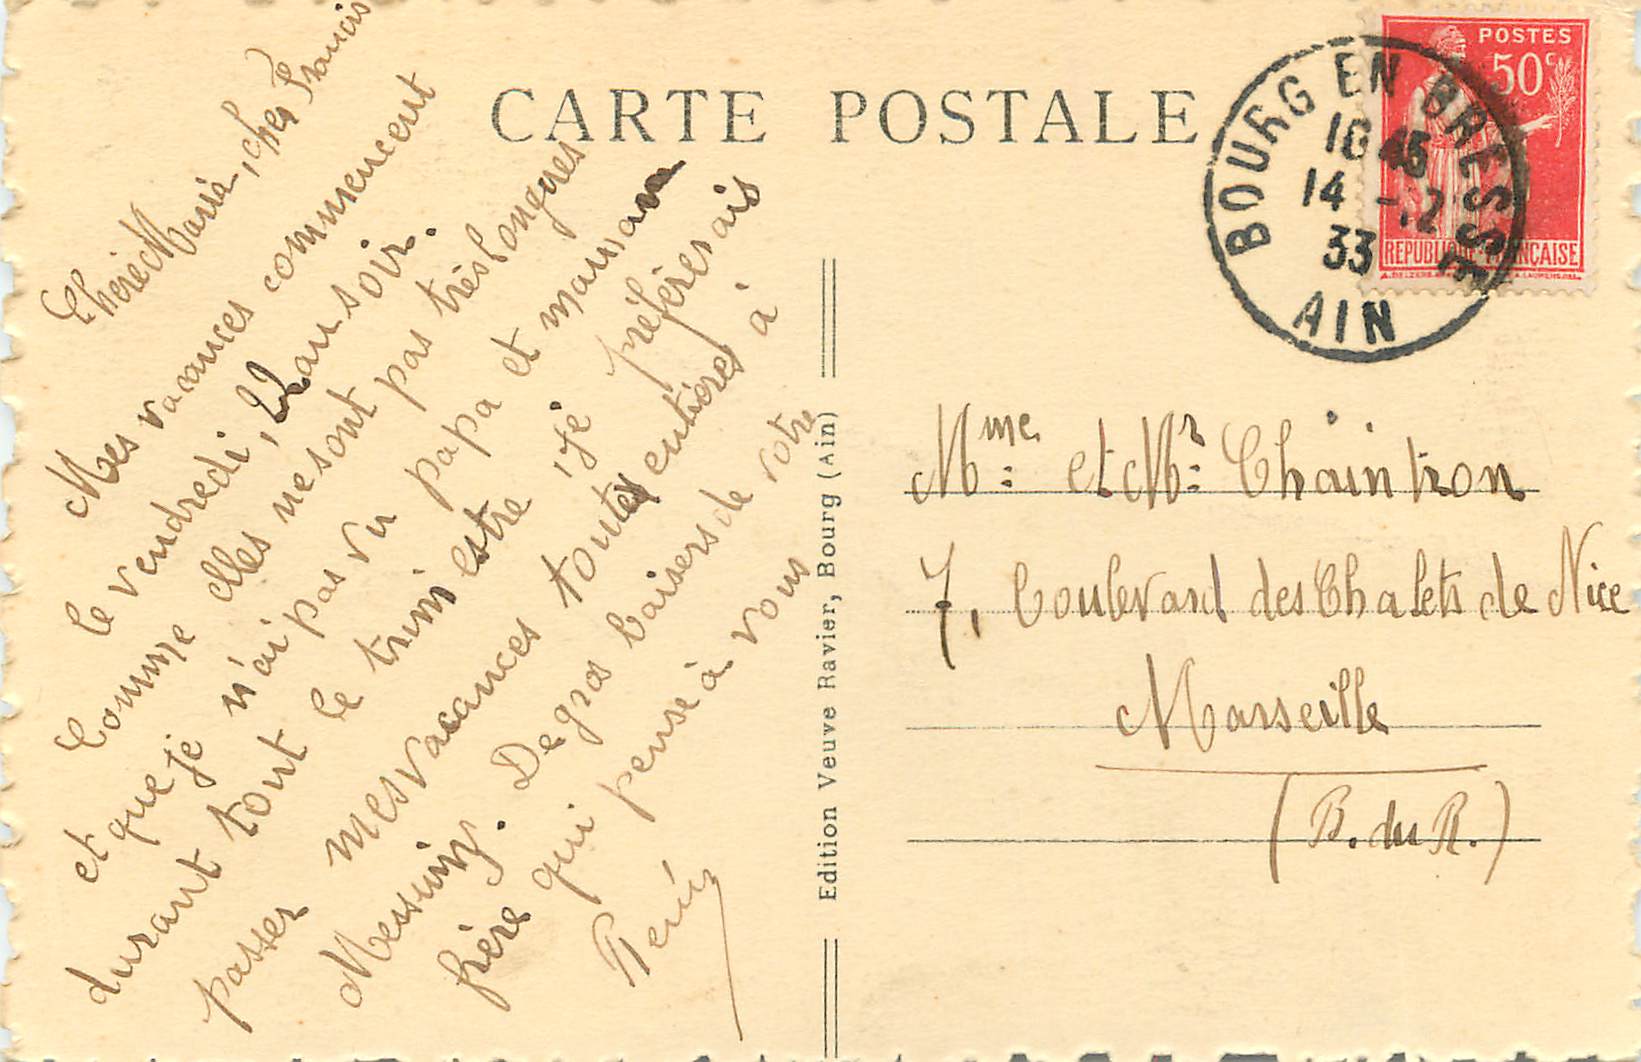 CARTE POSTALE
Chérie Maria, cher Francis
Mes vacances commencent
le vendredi, 22 au soir.
Comme elles ne sont pas très longues
et que je n'ai pas vu papa et maman
durant tout le trimestre, je préférerais
passer mes vacances toutes entières à
Messimy. De gros baisers de votre
frère qui pense à vous
René
Edition Veuve Ravier, Bourg (Ain)
POSTES
50c
REPUBLIQUE FRANÇAISE
BOURG EN BRESSE
16 45
14 -.2
33
AIN
Mme: et Mr: Chaintron
7, Boulevard des Chalets de Nice
Marseille
(B. du R.)